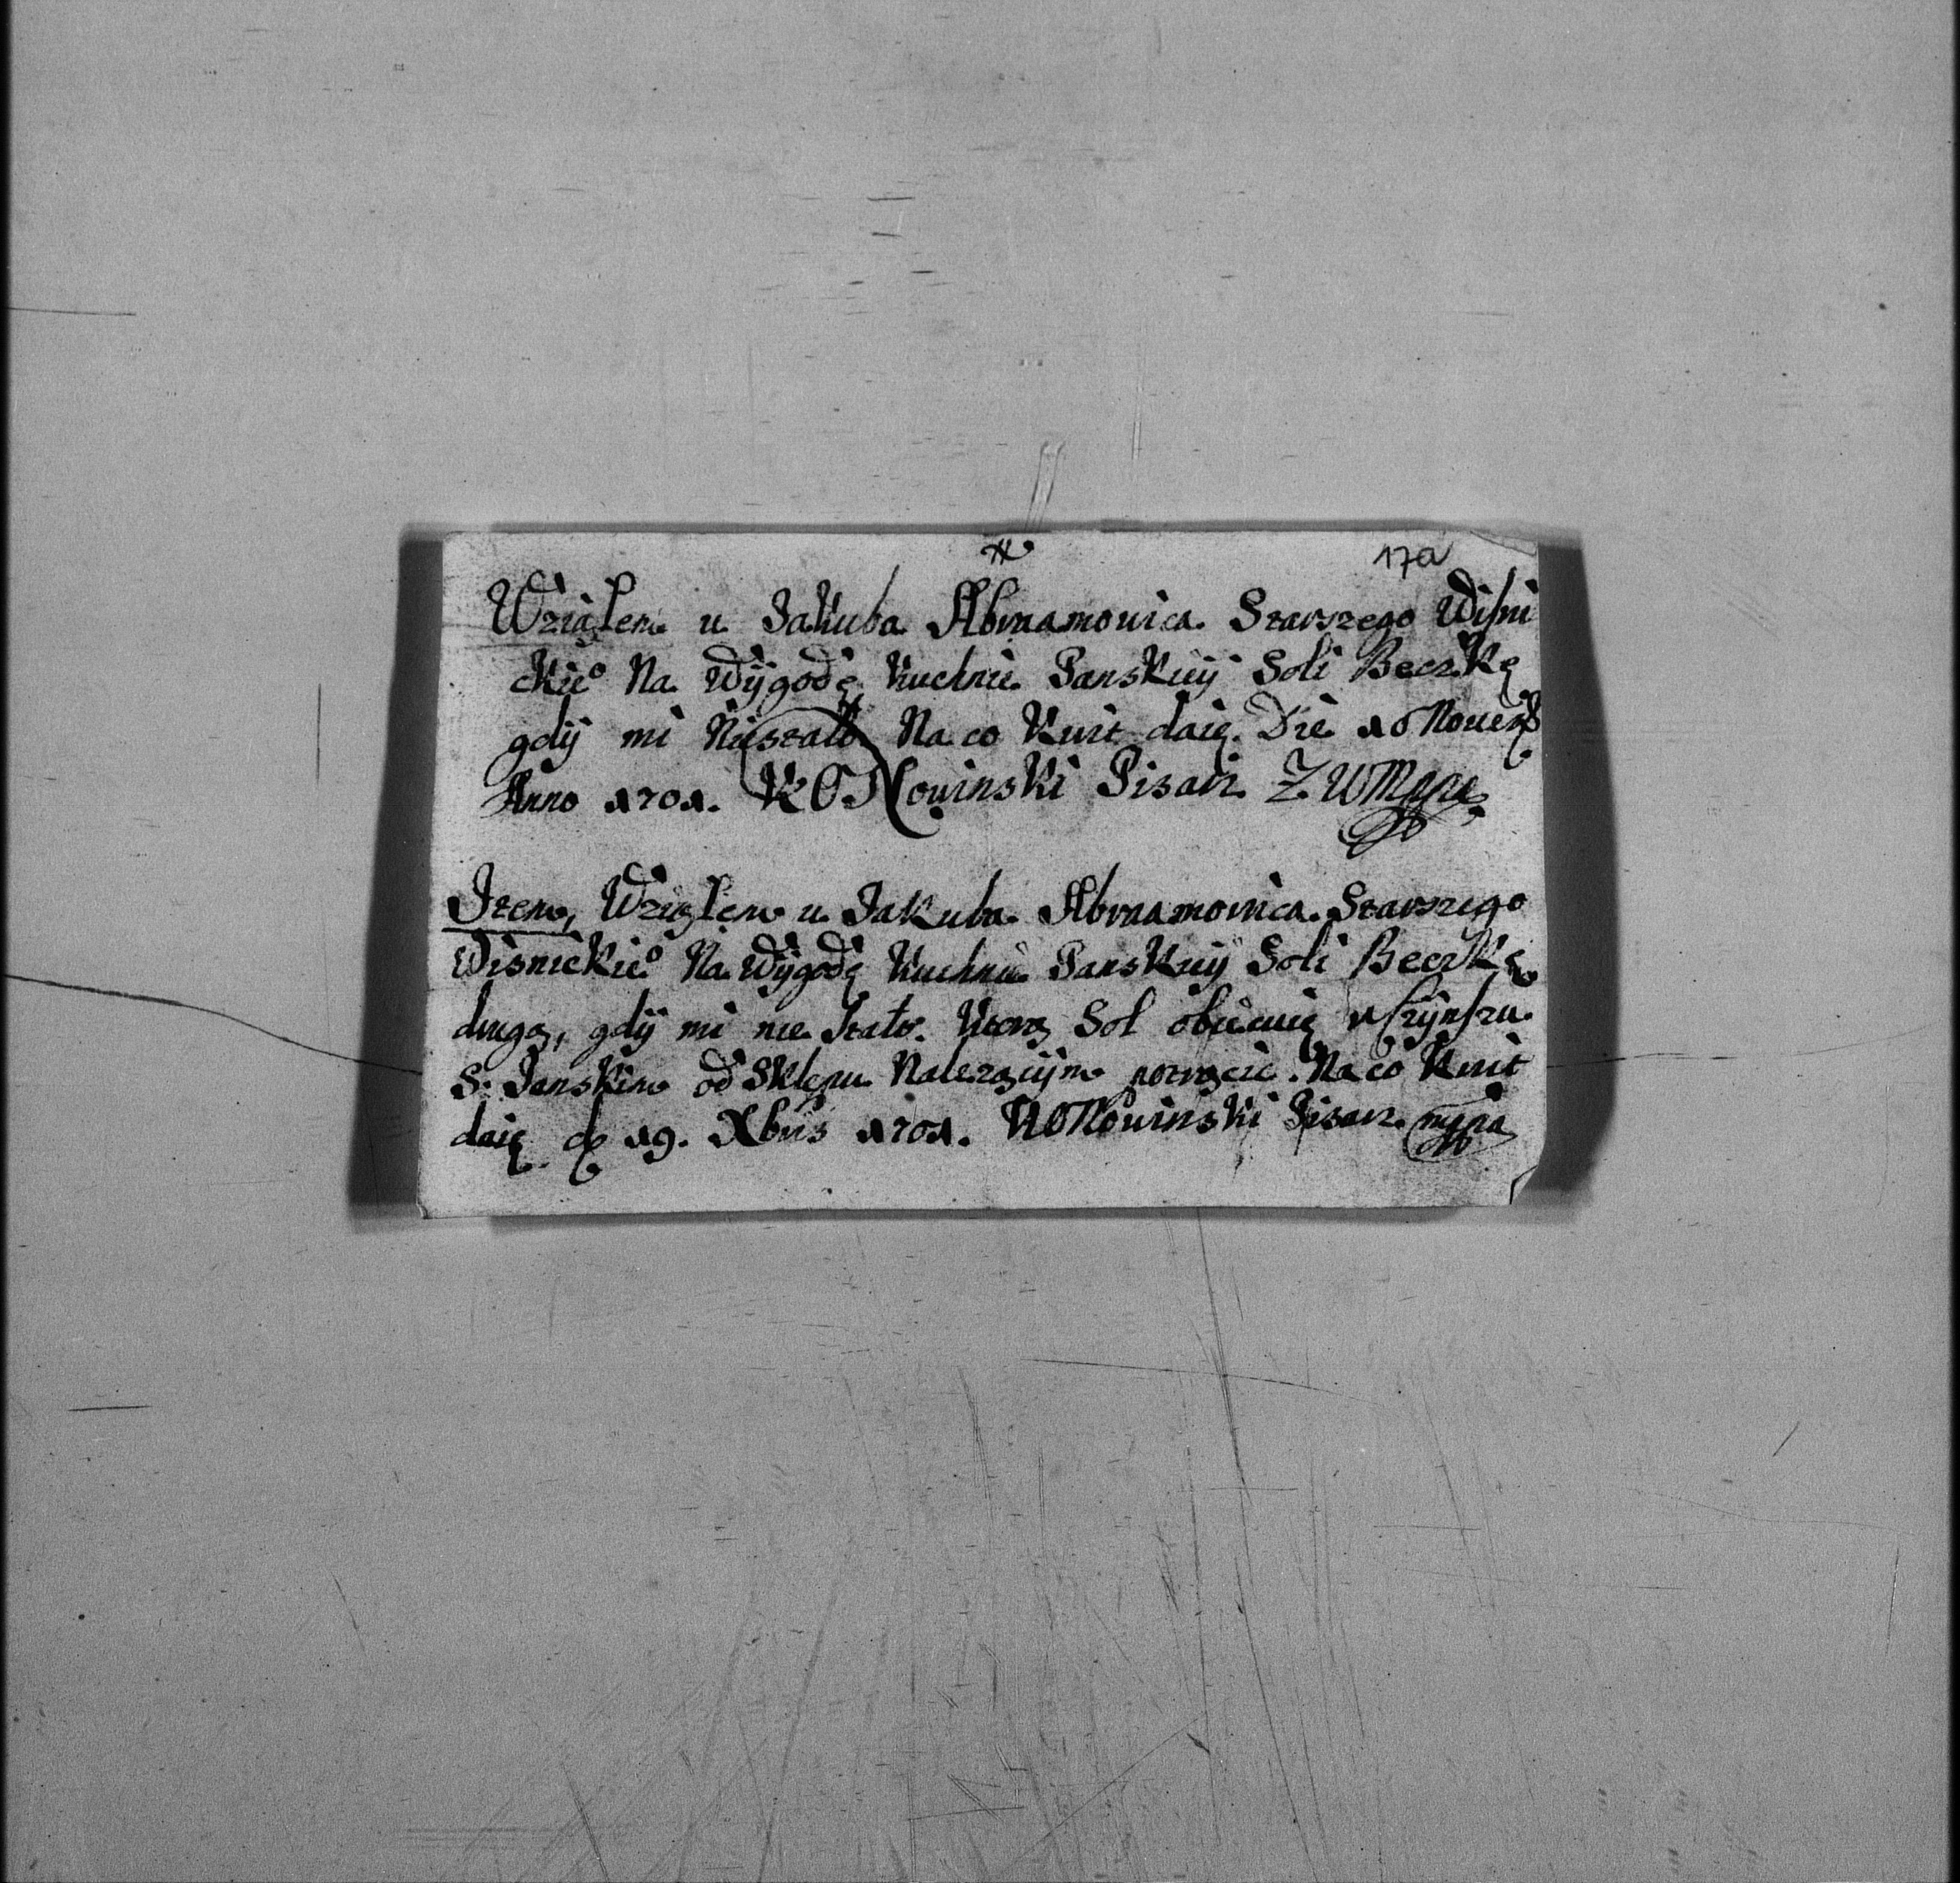 17a
Wziąłem u Jakuba Abramowica Starszego Wiſni
ckie° Na Wÿgodę Kuchnie Panskieÿ Soli Beczkę
gdÿ mi Niestało Na co Kwit daię. Die 10 Novemb
Anno 1701. KONowinski Pisarz Z. W Mppa
Item, Wziąłem u Jakuba Abramowica Starszego
Wisnickie° Na Wÿgodę Kuchnie Panskieÿ Soli Beczkę
drugą, gdÿ mi nie Stało. Ktorą Sol obiecuię w czÿnſzu
S. Janskim od Sklepu Należącÿm potrącić. Na co Kwit
daię d 19. Xbris 1701. KONowinski Pisarz mppa